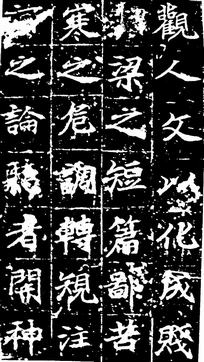 觀人文以化成貶
梁之短篇鄙苦
寒之危調轉規注
之論聽者開神